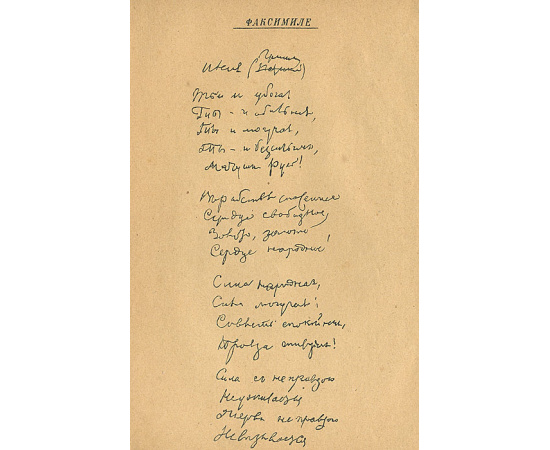 ФАКСИМИЛЕ
Гриша
Ты и убогая
Ты - и обильная,
Ты и могучая,
Ты - и бессильная,
Матушка Русь!
Въ рабствѣ спасенное
Сердце свободное,
Золото, золото
Сердце народное!
Сила народная,
Сила могучая!
Совѣсть спокойная,
Правда живучая!
Сила съ неправдою
Неуживается
Жертва неправдою
Невызывается